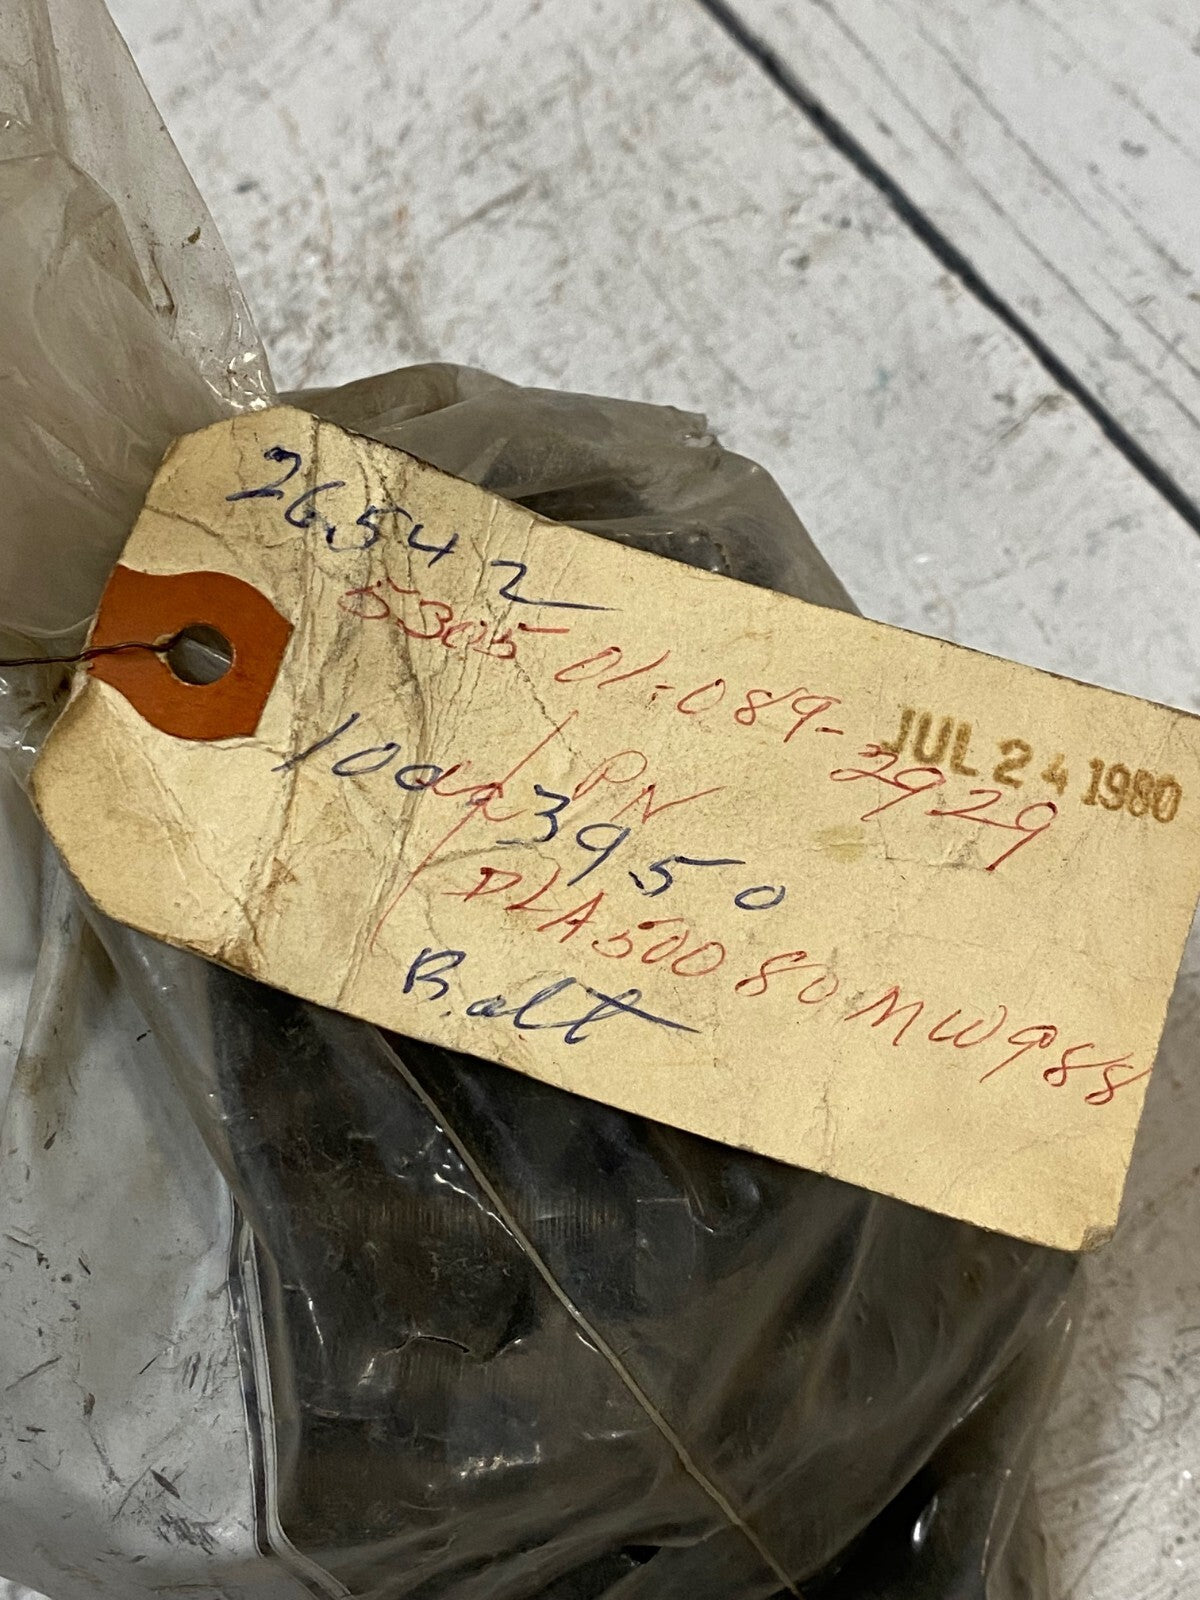 26542
5305 01-089-2929
JUL 24 1980
PN
1003950
DLA50080MW988
Bolt